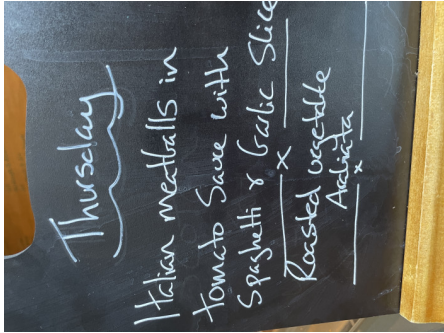 Thursday
Italian meatballs in
tomato Sauce with
Spaghetti & Garlic Slice
x
Roasted vegetable
Arabiata
x